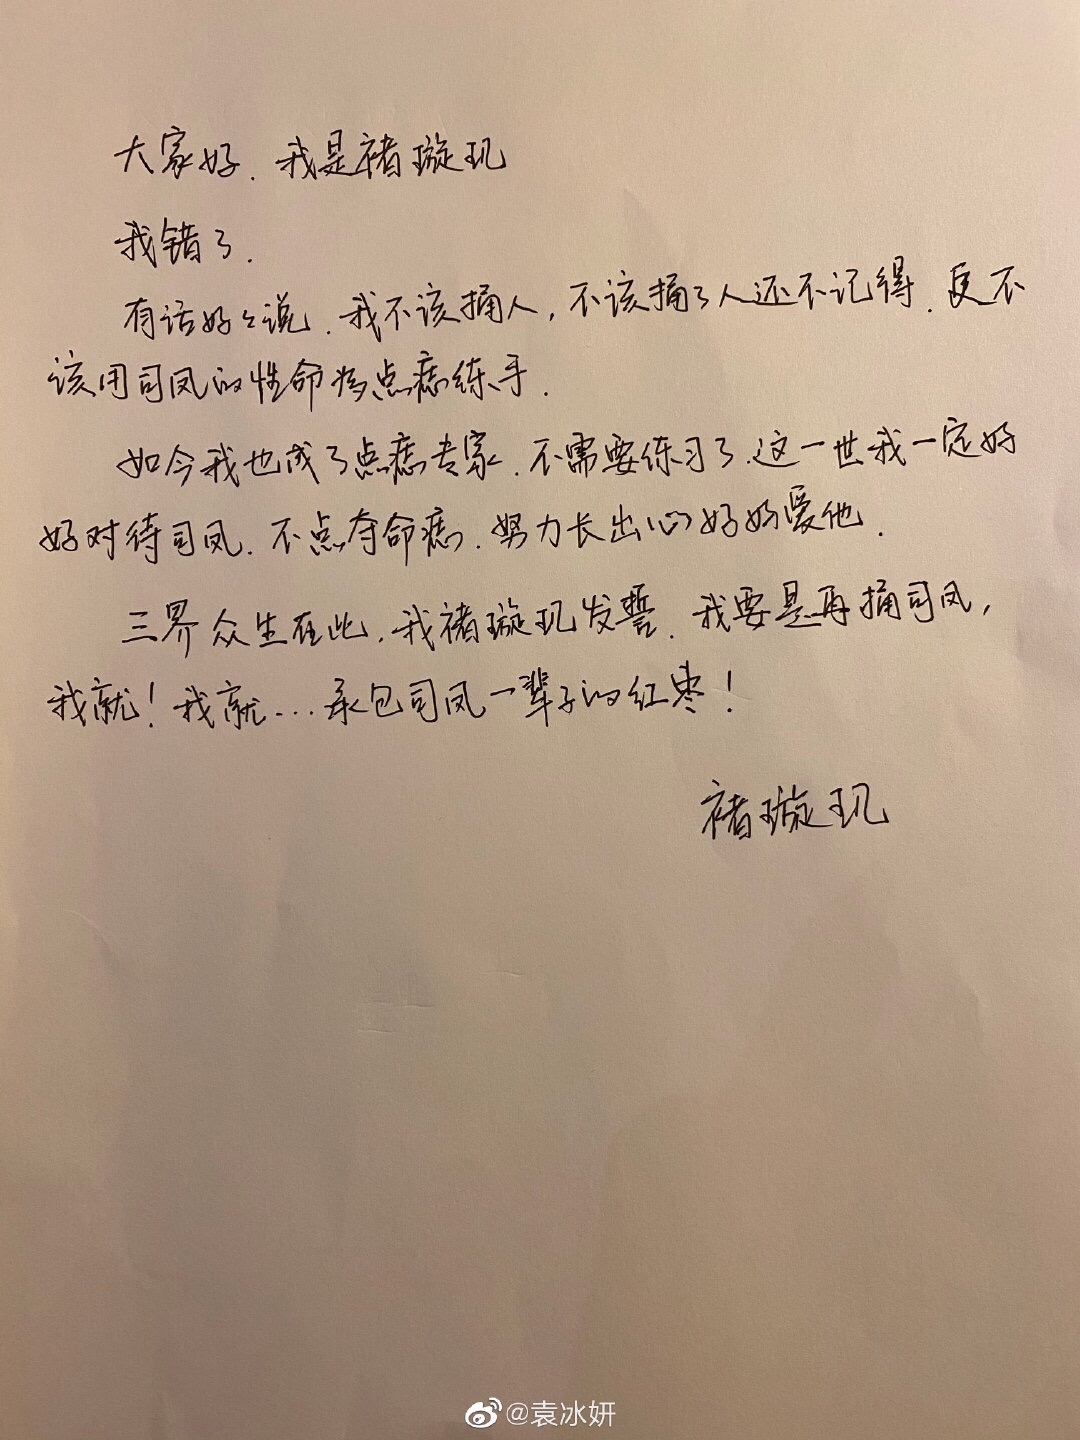 大家好.我是褚璇玑
我错了.
有话好好说.我不该捅人,不该捅了人还不记得.更不
该用司凤的性命为点痣练手.
如今我也成了点痣专家.不需要练习了.这一世我一定好
好对待司凤.不点夺命痣.努力长出心好好爱他.
三界众生在此.我褚璇玑发誓.我要是再捅司凤,
我就!我就...承包司凤一辈子的红枣!
褚璇玑
@袁冰妍